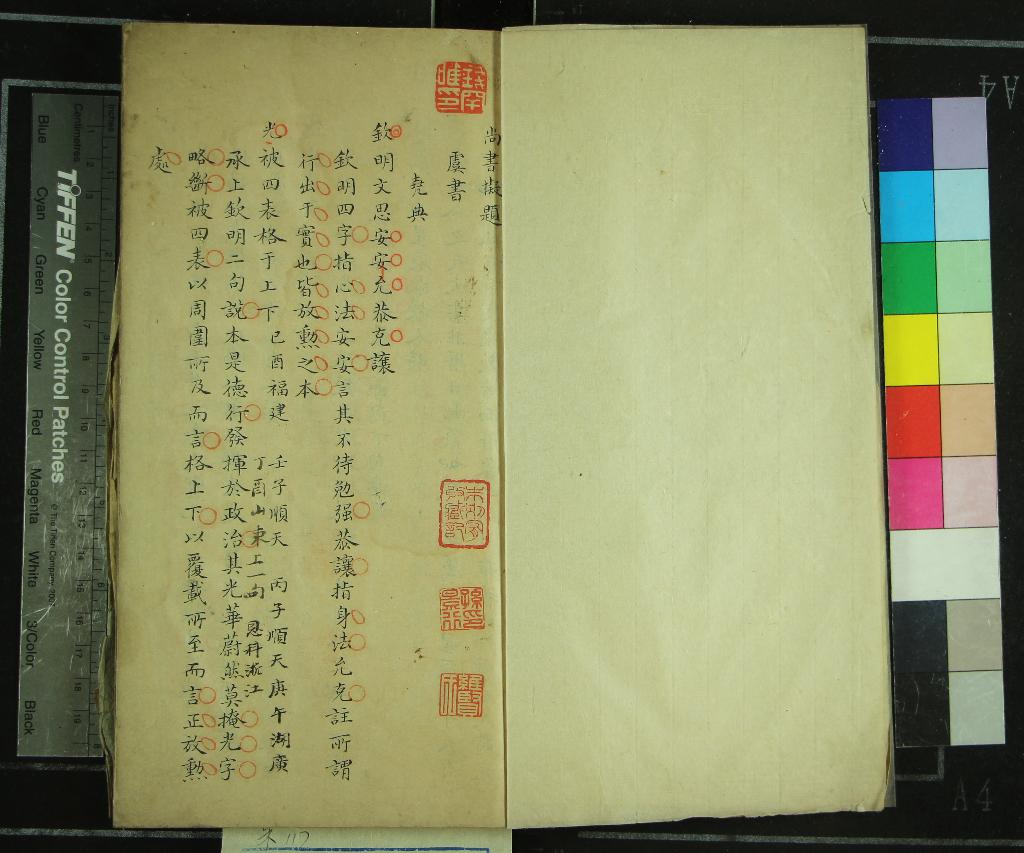 尚書擬題
虞書
堯典
欽明文思安安允恭克讓
欽明四字指心法安安言其不待勉强恭讓指身法允克註所謂
行出于實也皆放勲之本
光被四表格于上下 己酉福建 壬子順天 丙子順天 庚午湖廣
丁酉山東上一句 恩科浙江
承上欽明二句說本是德行發揮於政治其光華蔚然莫掩光字
略斷被四表以周圍所及而言格上下以覆載所至而言正放勲
處
TIFFEN Color Control Patches
© The Tiffen Company, 2007
Centimetres
Inches
Blue Cyan Green Yellow Red Magenta White 3/Color Black
A4
A4